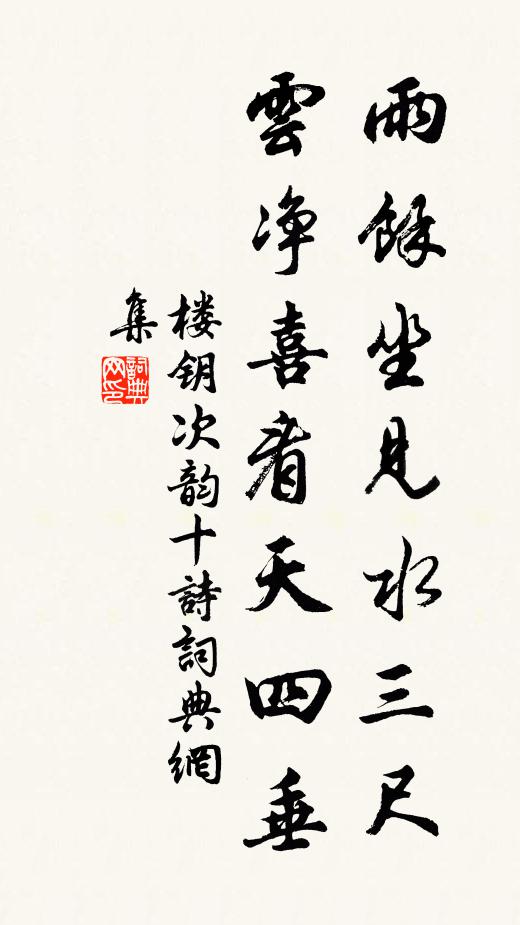 雨餘坐見水三尺
雲净喜看天四垂
楼钥次韵十詩詞典網
集
詞典网印